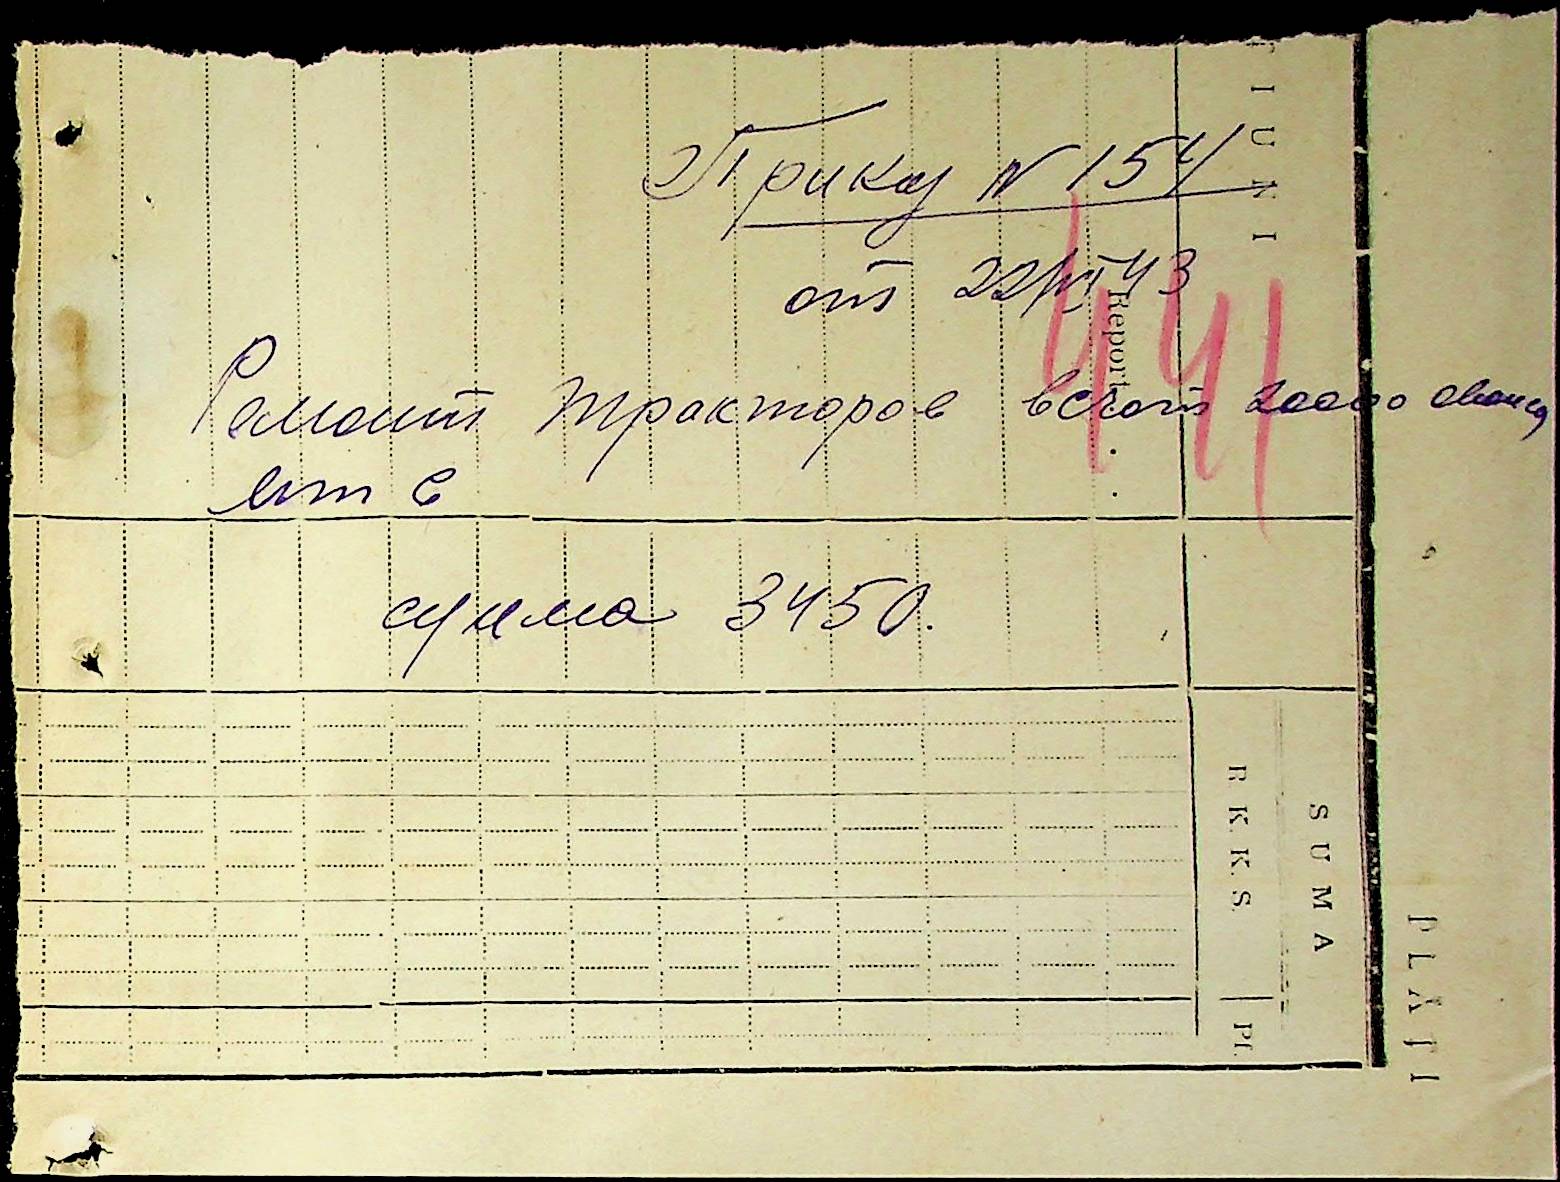 Приказ N 154
от 22/VI 43
441
Ремонт тракторов в счот 20000 аванса
мтс
сумма 3450.
IUNI
Report . .
SUMA
R.K.K.S.
Pf.
PLĂŢI